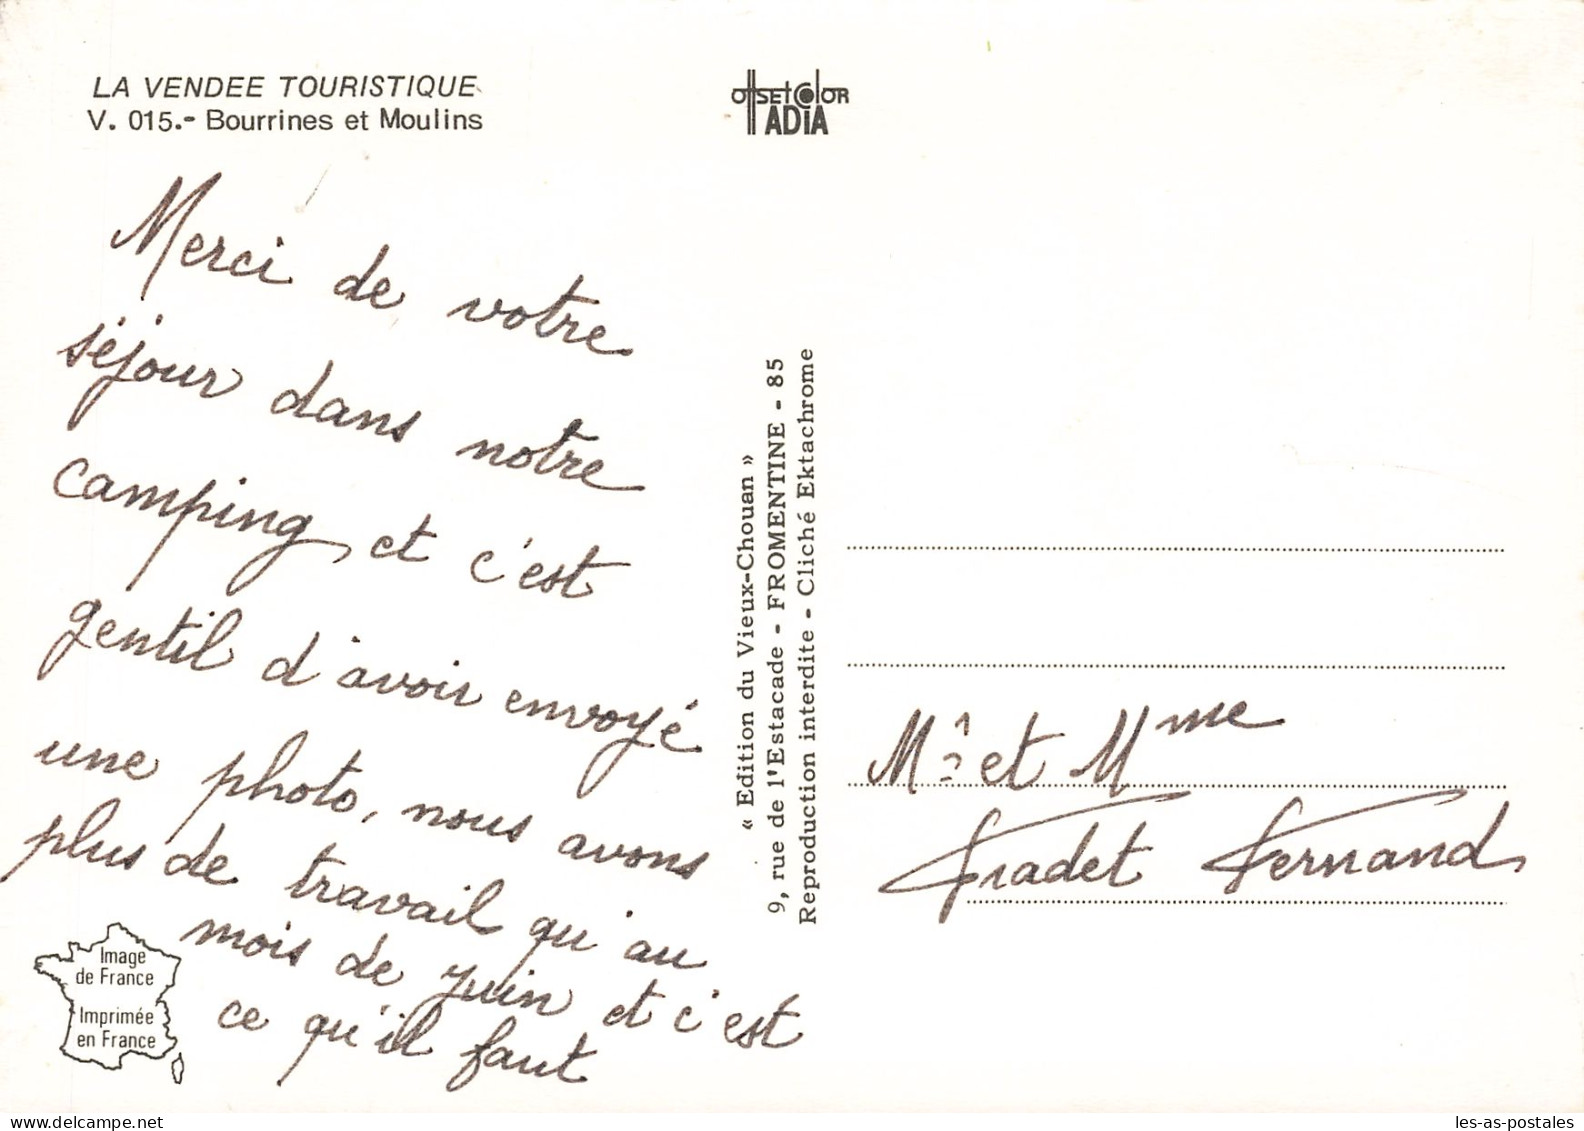 LA VENDEE TOURISTIQUE
V. 015.- Bourrines et Moulins
OffSEt COlOR
ADIA
Merci de votre
séjour dans notre
camping, et c'est
gentil d'avoir envoyé
une photo, nous avons
plus de travail qu'au
mois de juin et c'est
ce qu'il faut
Image
de France
Imprimée
en France
« Edition du Vieux-Chouan »
9, rue de l'Estacade - FROMENTINE - 85
Reproduction interdite - Cliché Ektachrome
Mr et Mme
Fradet Fernand
delcampe.net
les-as-postales